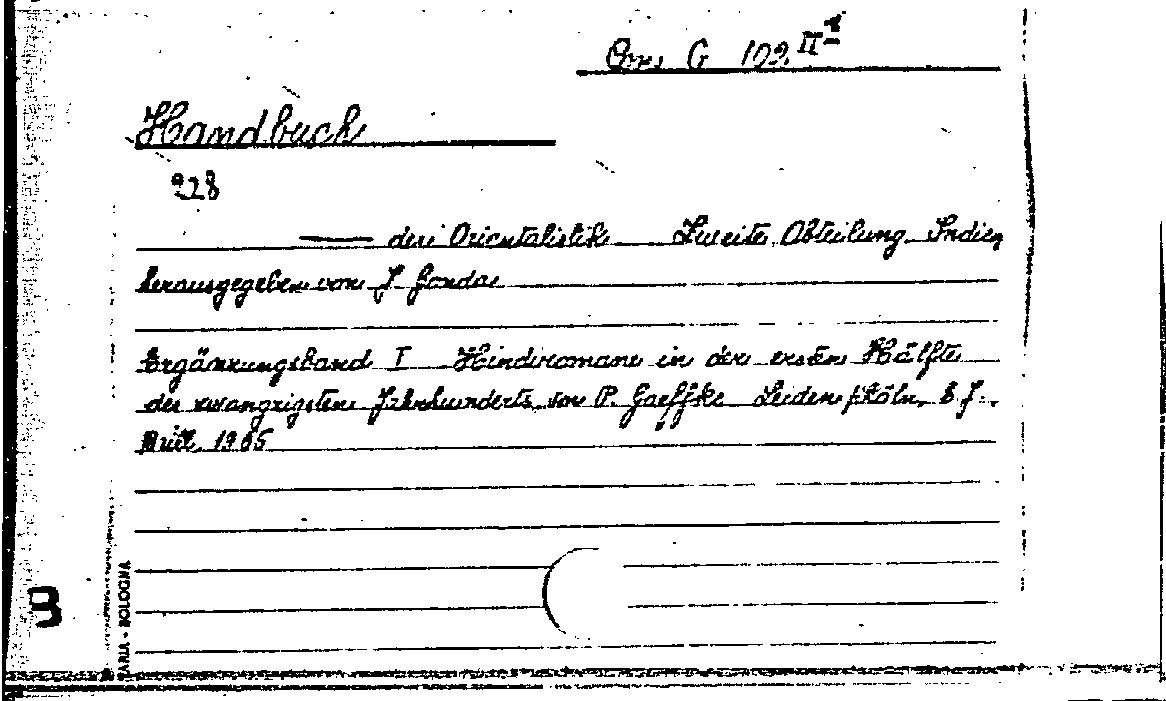 Ons. G 102 II-1
Handbuch
928
—— der Orientalistik Zweite Abteilung Indien
herausgegeben von J Gonda
Ergänzungsband I Hindiromane in der ersten Hälfte
des zwanzigsten Jahrhunderts von P. Gaeffke Leiden/Köln, E. J.
Brill 1965
B
ARIA - BOLOGNA